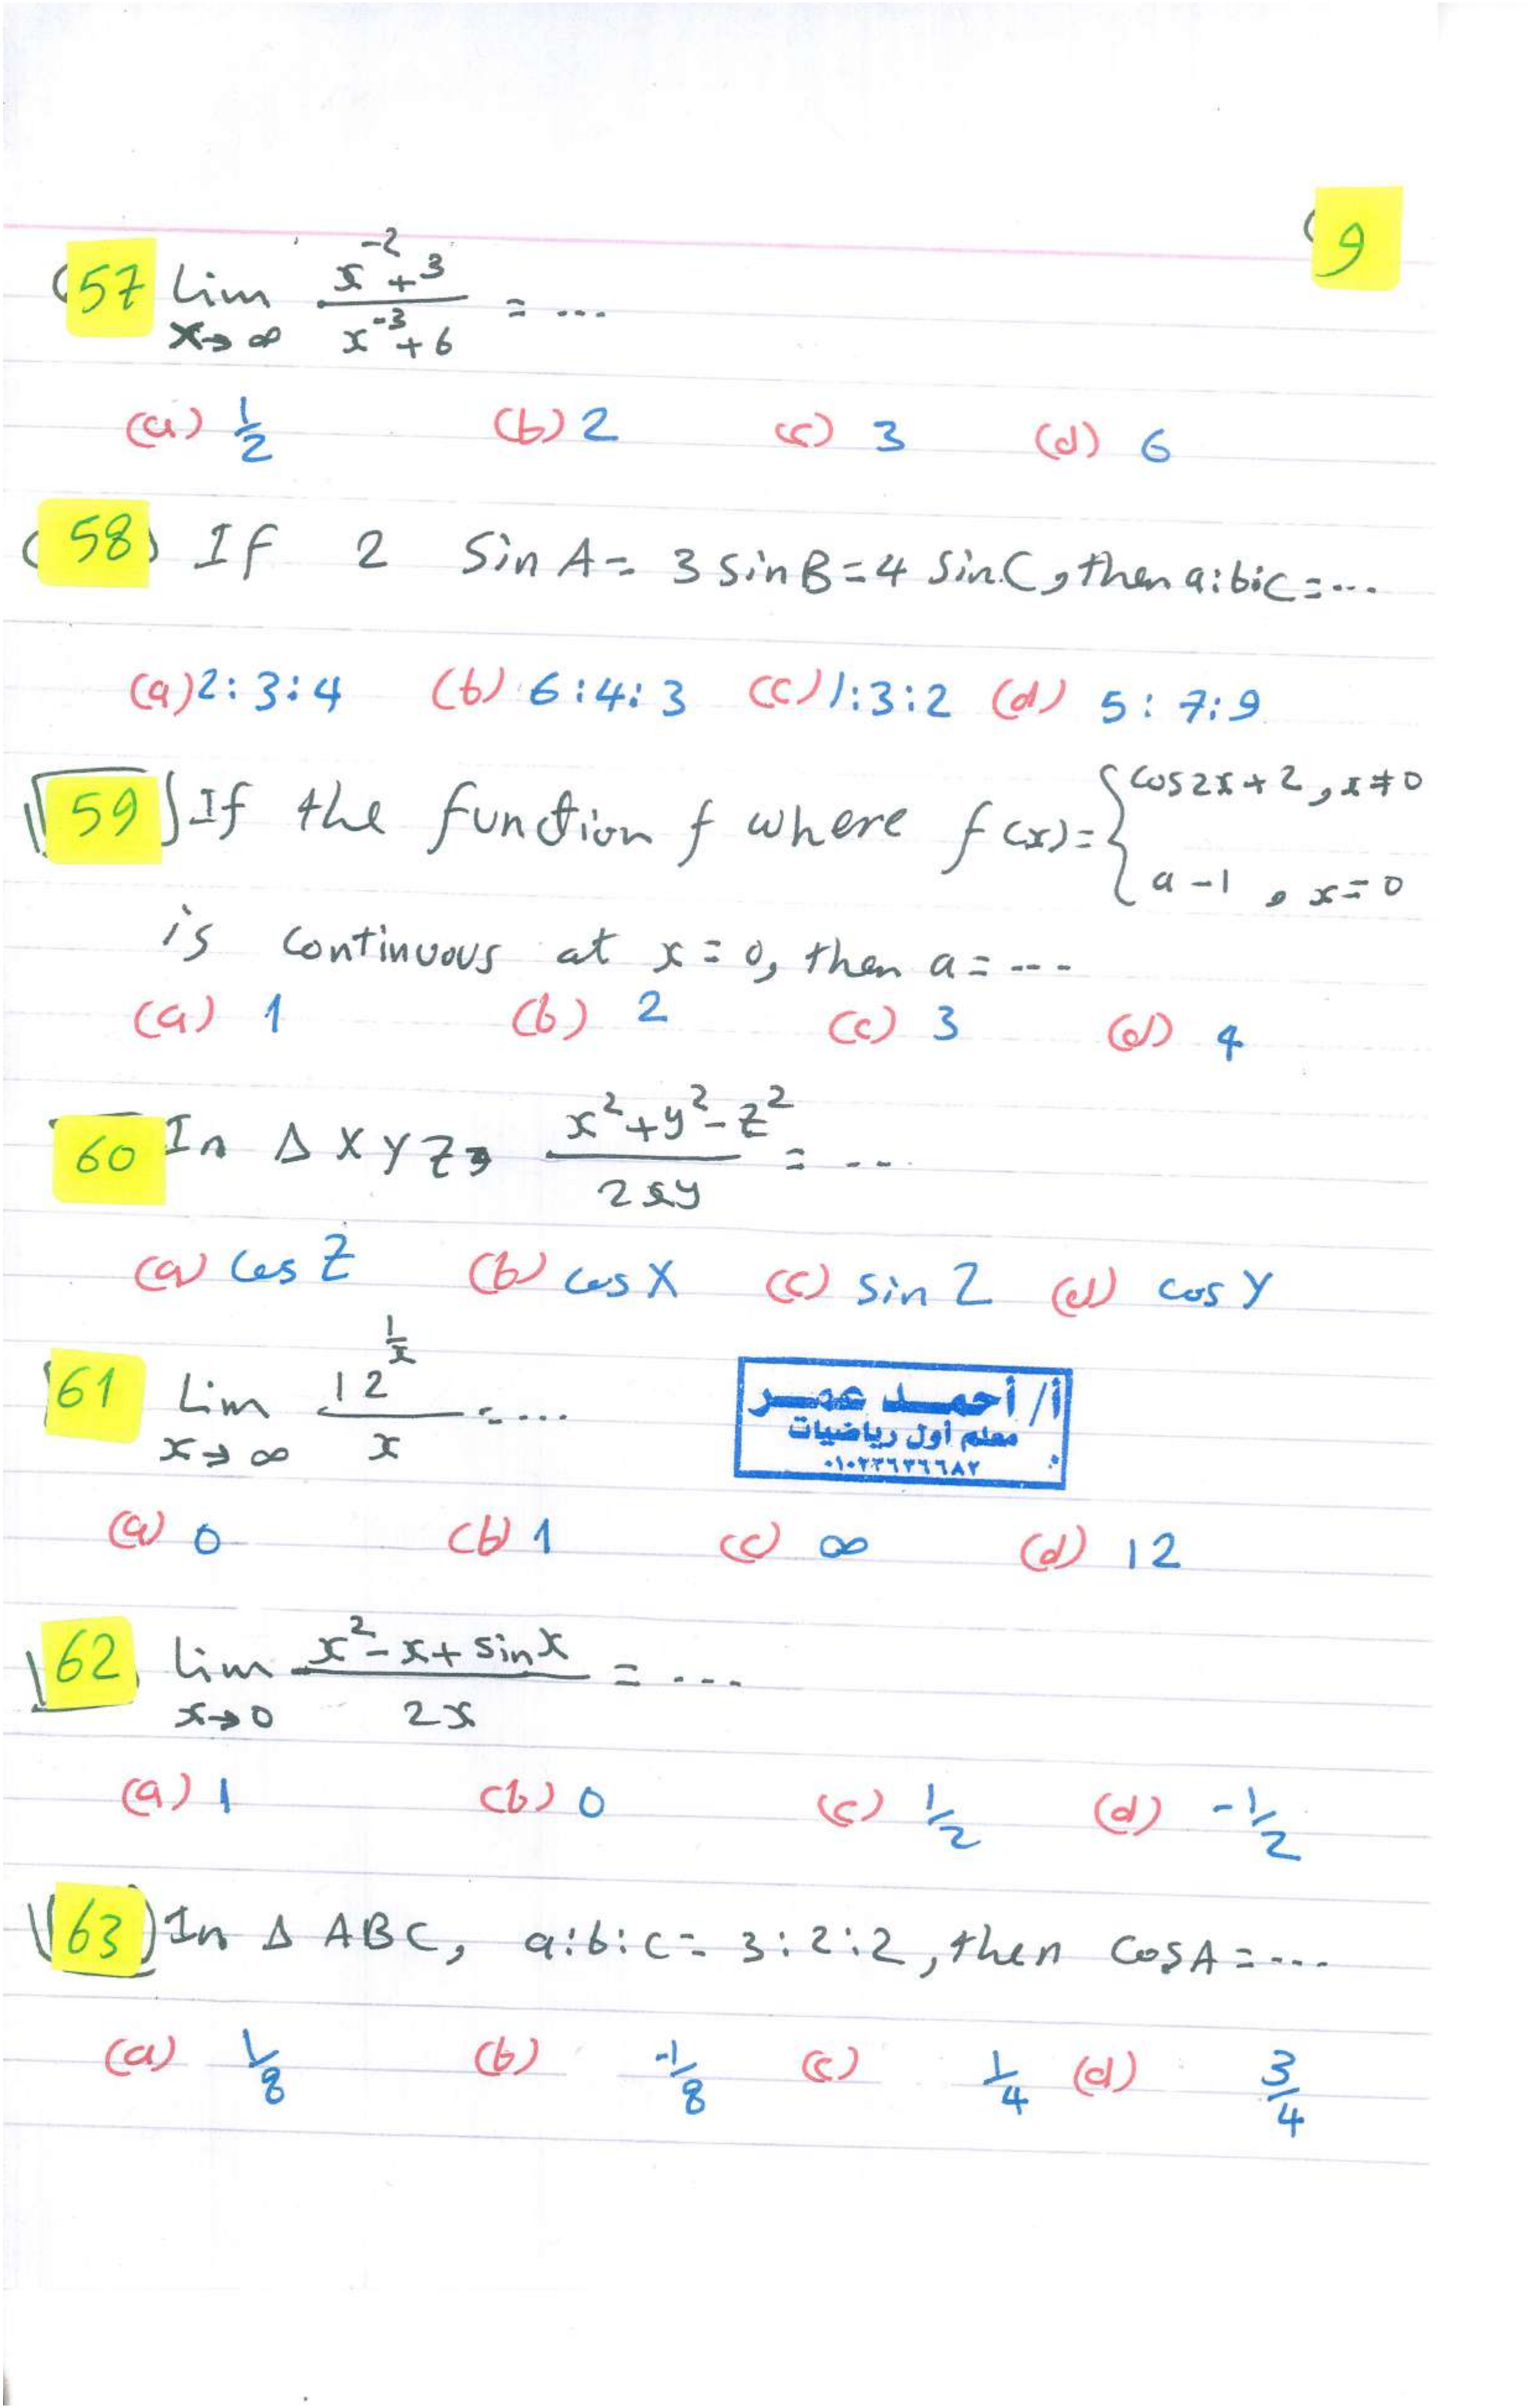 9
57 Lim x→∞ (x⁻² + 3)/(x⁻³ + 6) = ...
(a) 1/2 (b) 2 (c) 3 (d) 6
(58) If 2 Sin A = 3 sin B = 4 Sin C, then a:b:c = ...
(a) 2:3:4 (b) 6:4:3 (c) 1:3:2 (d) 5:7:9
59) If the function f where f(x) = { cos2x + 2, x≠0
a - 1, x = 0
is continuous at x = 0, then a = ---
(a) 1 (b) 2 (c) 3 (d) 4
60 In Δ XYZ, (x² + y² - z²)/(2xy) = ...
(a) cos Z (b) cos X (c) sin Z (d) cos Y
61 Lim x→∞ 12^(1/x)/x = ...
أ/ أحمد عمر
معلم أول رياضيات
٠١٠٢٢٦٢٦٦٨٢
(a) 0 (b) 1 (c) ∞ (d) 12
62 Lim x→0 (x² - x + sin x)/(2x) = ...
(a) 1 (b) 0 (c) 1/2 (d) -1/2
63) In Δ ABC, a:b:c = 3:2:2, then cos A = ...
(a) 1/8 (b) -1/8 (c) 1/4 (d) 3/4